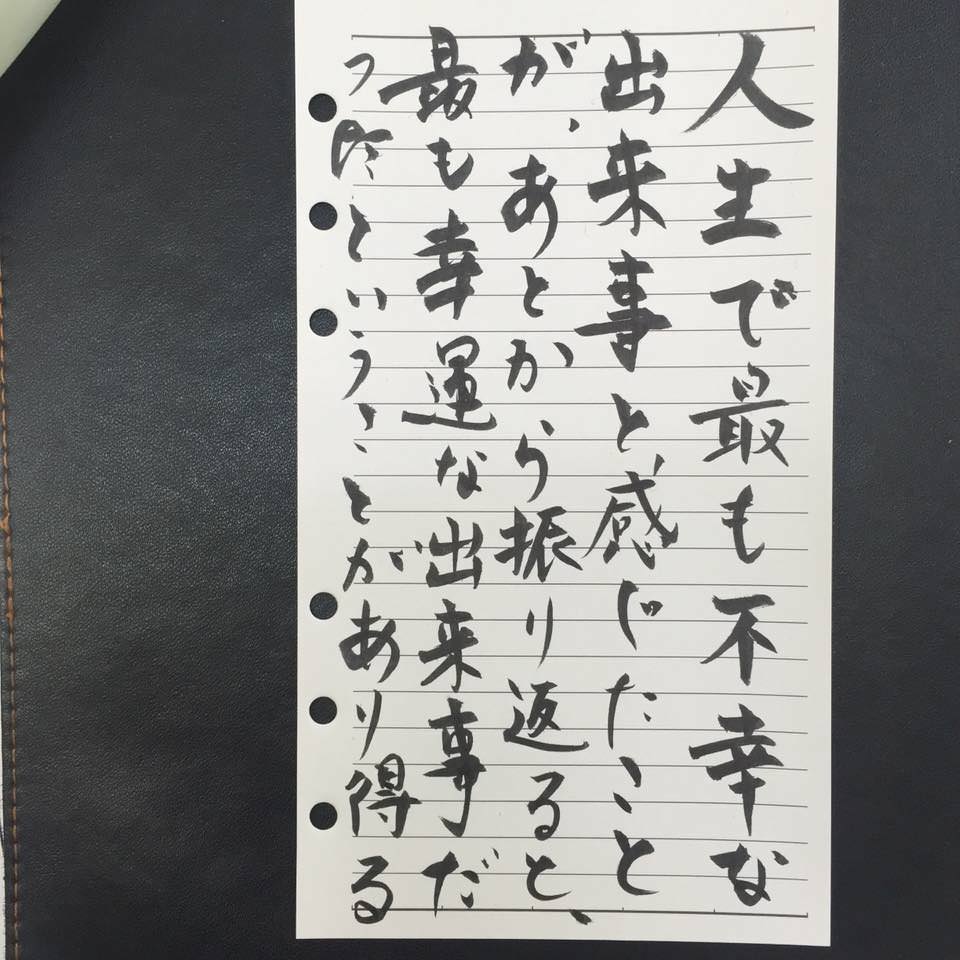 人生で最も不幸な
出来事と感じたこと
が、あとから振り返ると、
最も幸運な出来事だ
ったということがあり得る